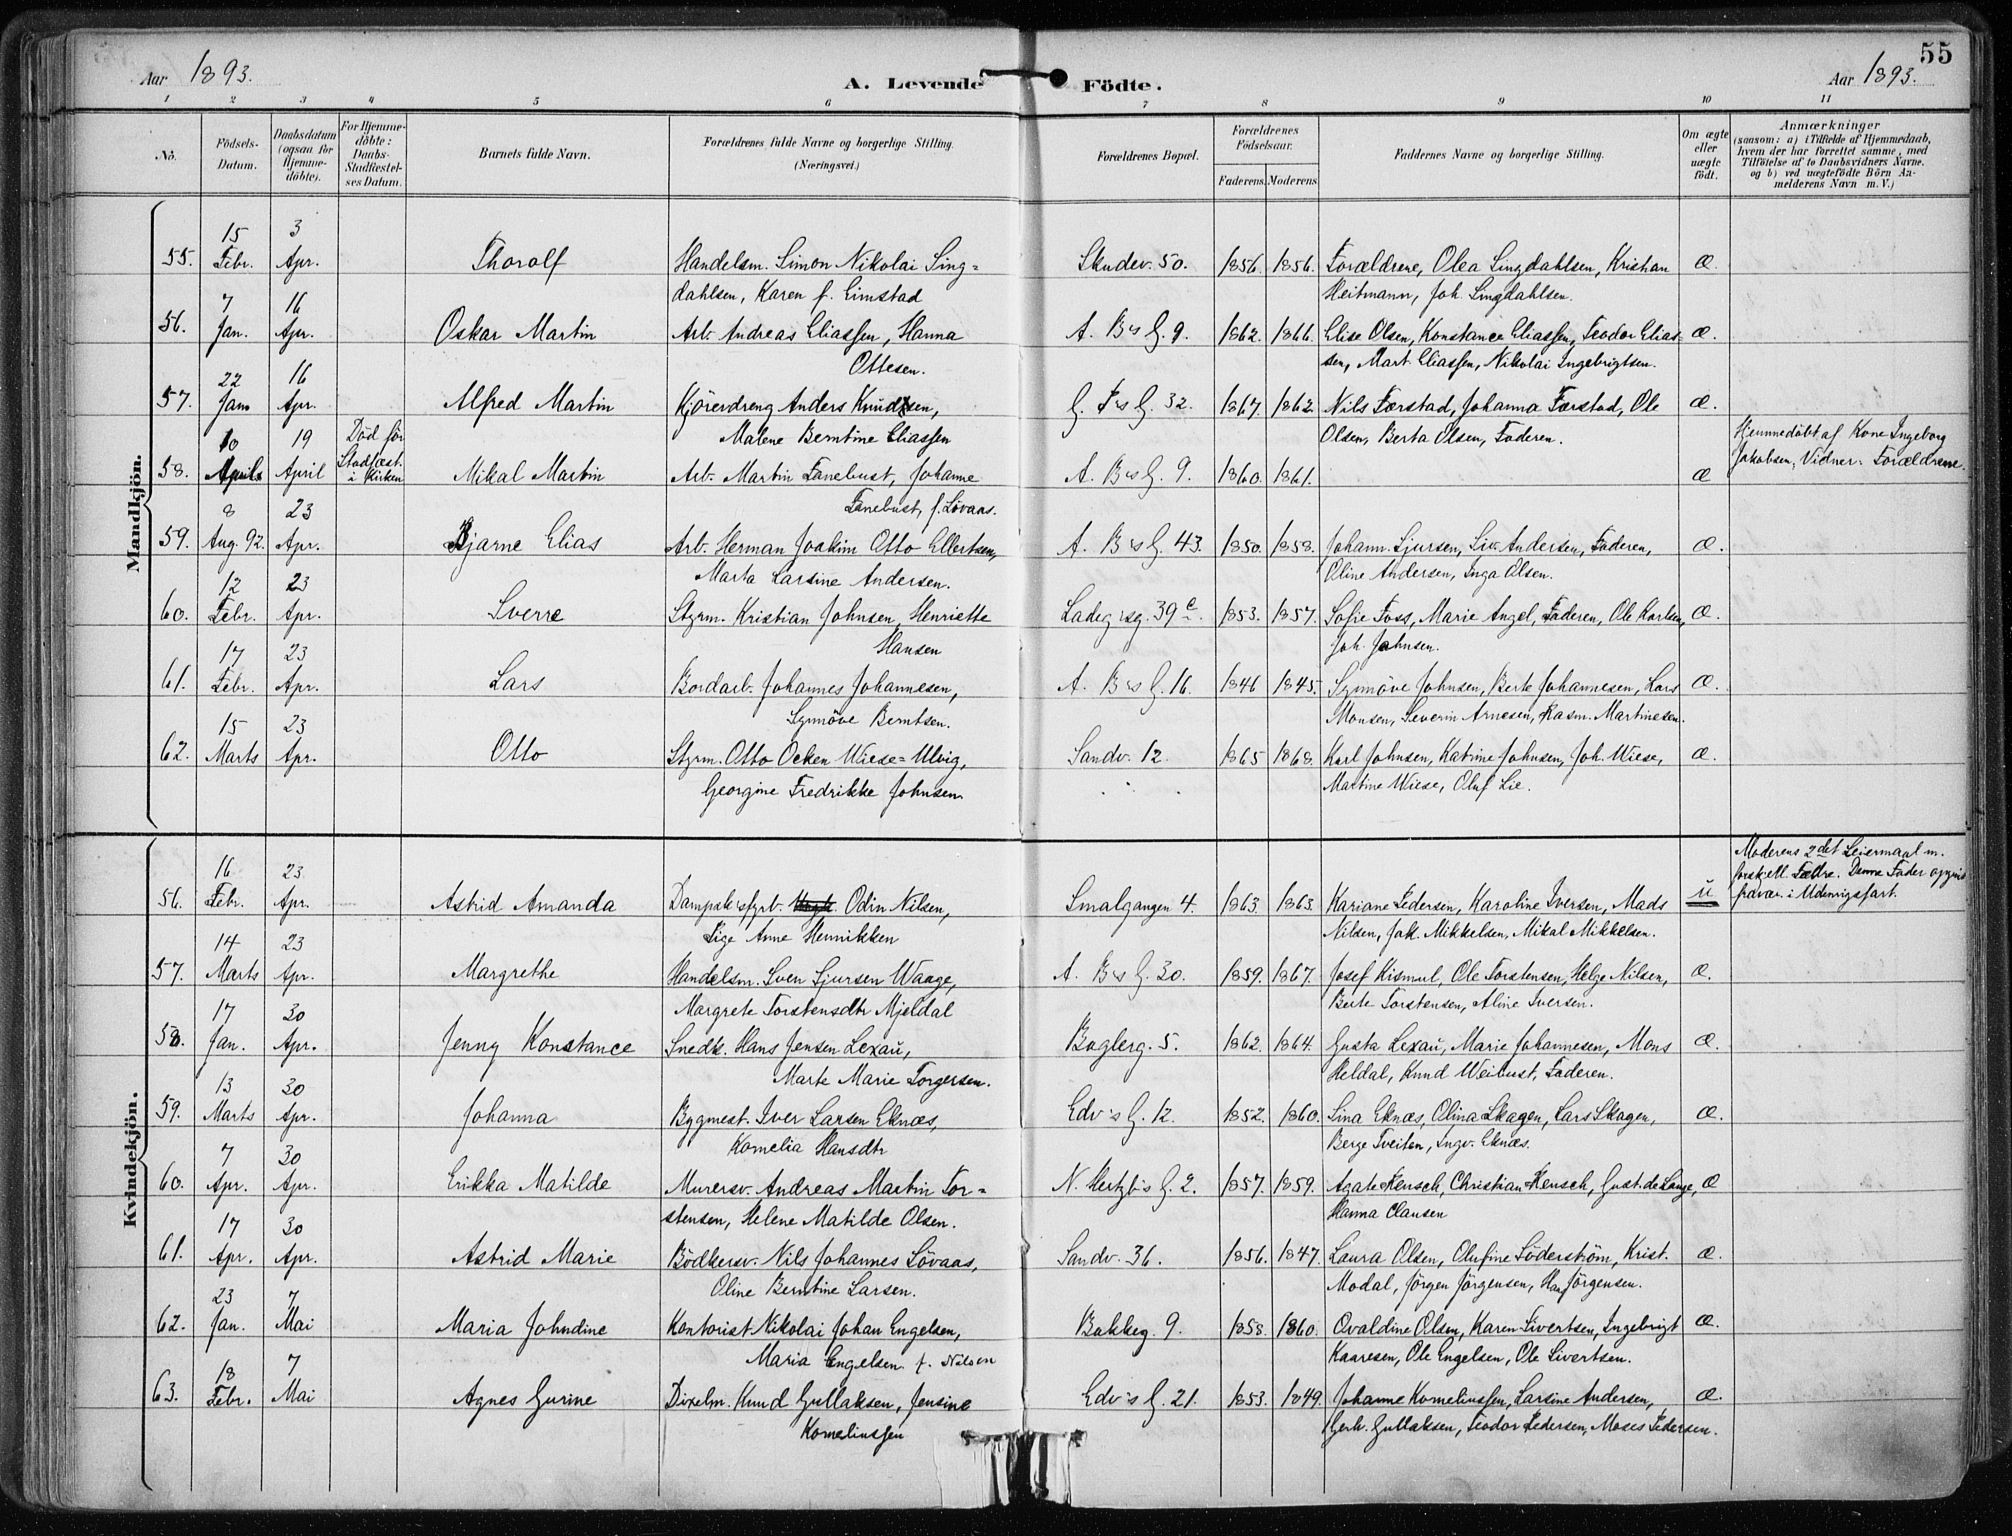 55
Aar 1893. A. Levende Födte. Aar 1893.
1 2 3 4 5 6 7 8 9 10 11
No. Födsels-Datum. Daabsdatum (ogsaa for Hjemme-döbte). For Hjemme-döbte: Daabs-Stadfæstel-ses Datum. Barnets fulde Navn. Forældrenes fulde Navne og borgerlige Stilling. (Næringsvei.) Forældrenes Bopæl. Forældrenes Födselsaar. Faderens. Moderens. Faddernes Navne og borgerlige Stilling. Om ægte eller uægte födt. Anmærkninger (saasom: a) i Tilfælde af Hjemmedaab, hvem der har forrettet samme, med Tilföielse af to Daabsvidners Navne. og b) ved uægtefödte Börn An-melderens Navn m. V.)
Mandkjön.
15 3
55. Febr. Apr. Thorolf Handelsm. Simon Nikolai Sing= Skudev. 50. 1856. 1856. Forældrene, Olea Singdahlsen, Kristian Æ.
dahlsen, Karen f. Eimstad Heitmann, Joh. Singdahlsen.
7 16
56. Jan. Apr. Oskar Martin Arb. Andreas Eliassen, Hanna A. B's G. 9. 1862. 1866. Elise Olsen, Konstance Eliassen, Teodor Elias- Æ.
Ottesen. sen, Mart. Eliassen, Nikolai Ingebrigtsen.
22 16
57. Jan Apr. Alfred Martin Kjöredreng Anders Knudsen, 32. 1867. 1862. Nils Færstad, Johanna Færstad, Ole Æ.
Malene Berntine Eliassen Olsen, Berta Olsen, Faderen.
10 19 Död för Stadfæst. i Kirken Hjemmedöbt af Kone Ingeborg
58. April April Mikal Martin Arb. Martin Fanebust, Johanne A. B's G. 9. 1860. 1861. Æ Jakobsen, Vidner: Forældrene.
Fanebust, f. Lövaas.
8 23
59. Aug. 92. Apr. Bjarne Elias Arb. Herman Joakim Otto Ellertsen, A. B's G. 43. 1850. 1858. Johann. Sjursen, Siv. Andersen, Faderen, Æ.
Marta Larsine Andersen. Oline Andersen, Inga Olsen.
12 23
60. Febr. Apr. Sverre Styrm. Kristian Johnsen, Henriette Ladeg.sg. 39 e. 1853. 1857. Sofie Foss, Marie Angel, Faderen, Ole Karlsen, Æ.
Hansen Joh. Johnsen.
17 23
61. Febr. Apr. Lars Bordarb. Johannes Johannesen, A. B's G. 16. 1846 1845. Synnöve Johnsen, Berte Johannesen, Lars Æ.
Synnöve Berntsen. Monsen, Severin Arnesen, Rasm. Martinesen.
15 23
62. Marts Apr. Otto Styrm. Otto Ocken Wiese=Ulvig, Sandv. 12. 1865 1868. Karl Johnsen, Katrine Johnsen, Joh. Wiese, Æ.
Georgine Fredrikke Johnsen. Martine Wiese, Oluf Lie.
Kvindekjön.
16 23 Moderens 2det Leiermaal m.
forskjell. Fædre. Denne Fader opgives
56. Febr. Apr. Astrid Amanda Dampskibsfyrb. Odin Nilsen, Smalgangen 4. 1863. 1863. Kariane Pedersen, Karoline Iversen, Mads u fravær. i Udenrigsfart.
Pige Anne Henrikken Nilsen, Jak. Mikkelsen, Mikal Mikkelsen.
14 23
57. Marts Apr. Margrethe Handelsm. Sven Sjursen Waage, A. B's G. 30. 1859. 1867. Josef Kismul, Ole Torstensen, Helge Nilsen, Æ.
Margrete Torstensdtr Mjeldal Berte Torstensen, Aline Iversen.
17 30
58. Jan. Apr. Jenny Konstance Snedk. Hans Jensen Lexau, Baglerg. 5. 1862. 1864. Gusta Lexau, Marie Johannesen, Mons Æ.
Marte Marie Torgersen. Heldal, Knud Weibust, Faderen.
13 30
59. Marts Apr. Johanna Bygmest. Iver Larsen Eknæs, Edv's G. 12. 1852. 1860. Sina Eknæs, Olina Skagen, Lars Skagen, Æ.
Kornelia Hansdtr Berge Tveiten, Ingv. Eknæs.
7 30
60. Apr. Apr. Erikka Matilde Murersv. Andreas Martin Tor= N. Hertzb's G. 2. 1857. 1859. Agate Hensch, Christian Hensch, Gust. de Lange, Æ
stensen, Helene Matilde Olsen. Hanna Clausen
17 30
61. Apr. Apr. Astrid Marie Bödkersv. Nils Johannes Lövaas, Sandv. 36. 1856. 1847. Laura Olsen, Olufine Söderström, Krist. Æ.
Oline Berntine Larsen. Modal, Jörgen Jörgensen, Hans Jörgensen.
23 7
62. Jan. Mai Maria Johndine Kontorist Nikolai Johan Engelsen, Bakkeg. 9. 1858. 1860. Ovaldine Olsen, Karen Sivertsen, Ingebrigt Æ.
Maria Engelsen f. Nilsen Kaaresen, Ole Engelsen, Ole Sivertsen.
18 7
63. Febr. Mai Agnes Gurine Dixelm. Knud Gullaksen, Jensine Edv's G. 21. 1853. 1849. Johanne Korneliussen, Larsine Andersen, Æ.
Korneliussen Gerh. Gullaksen, Teodor Pedersen, Moses Pedersen.